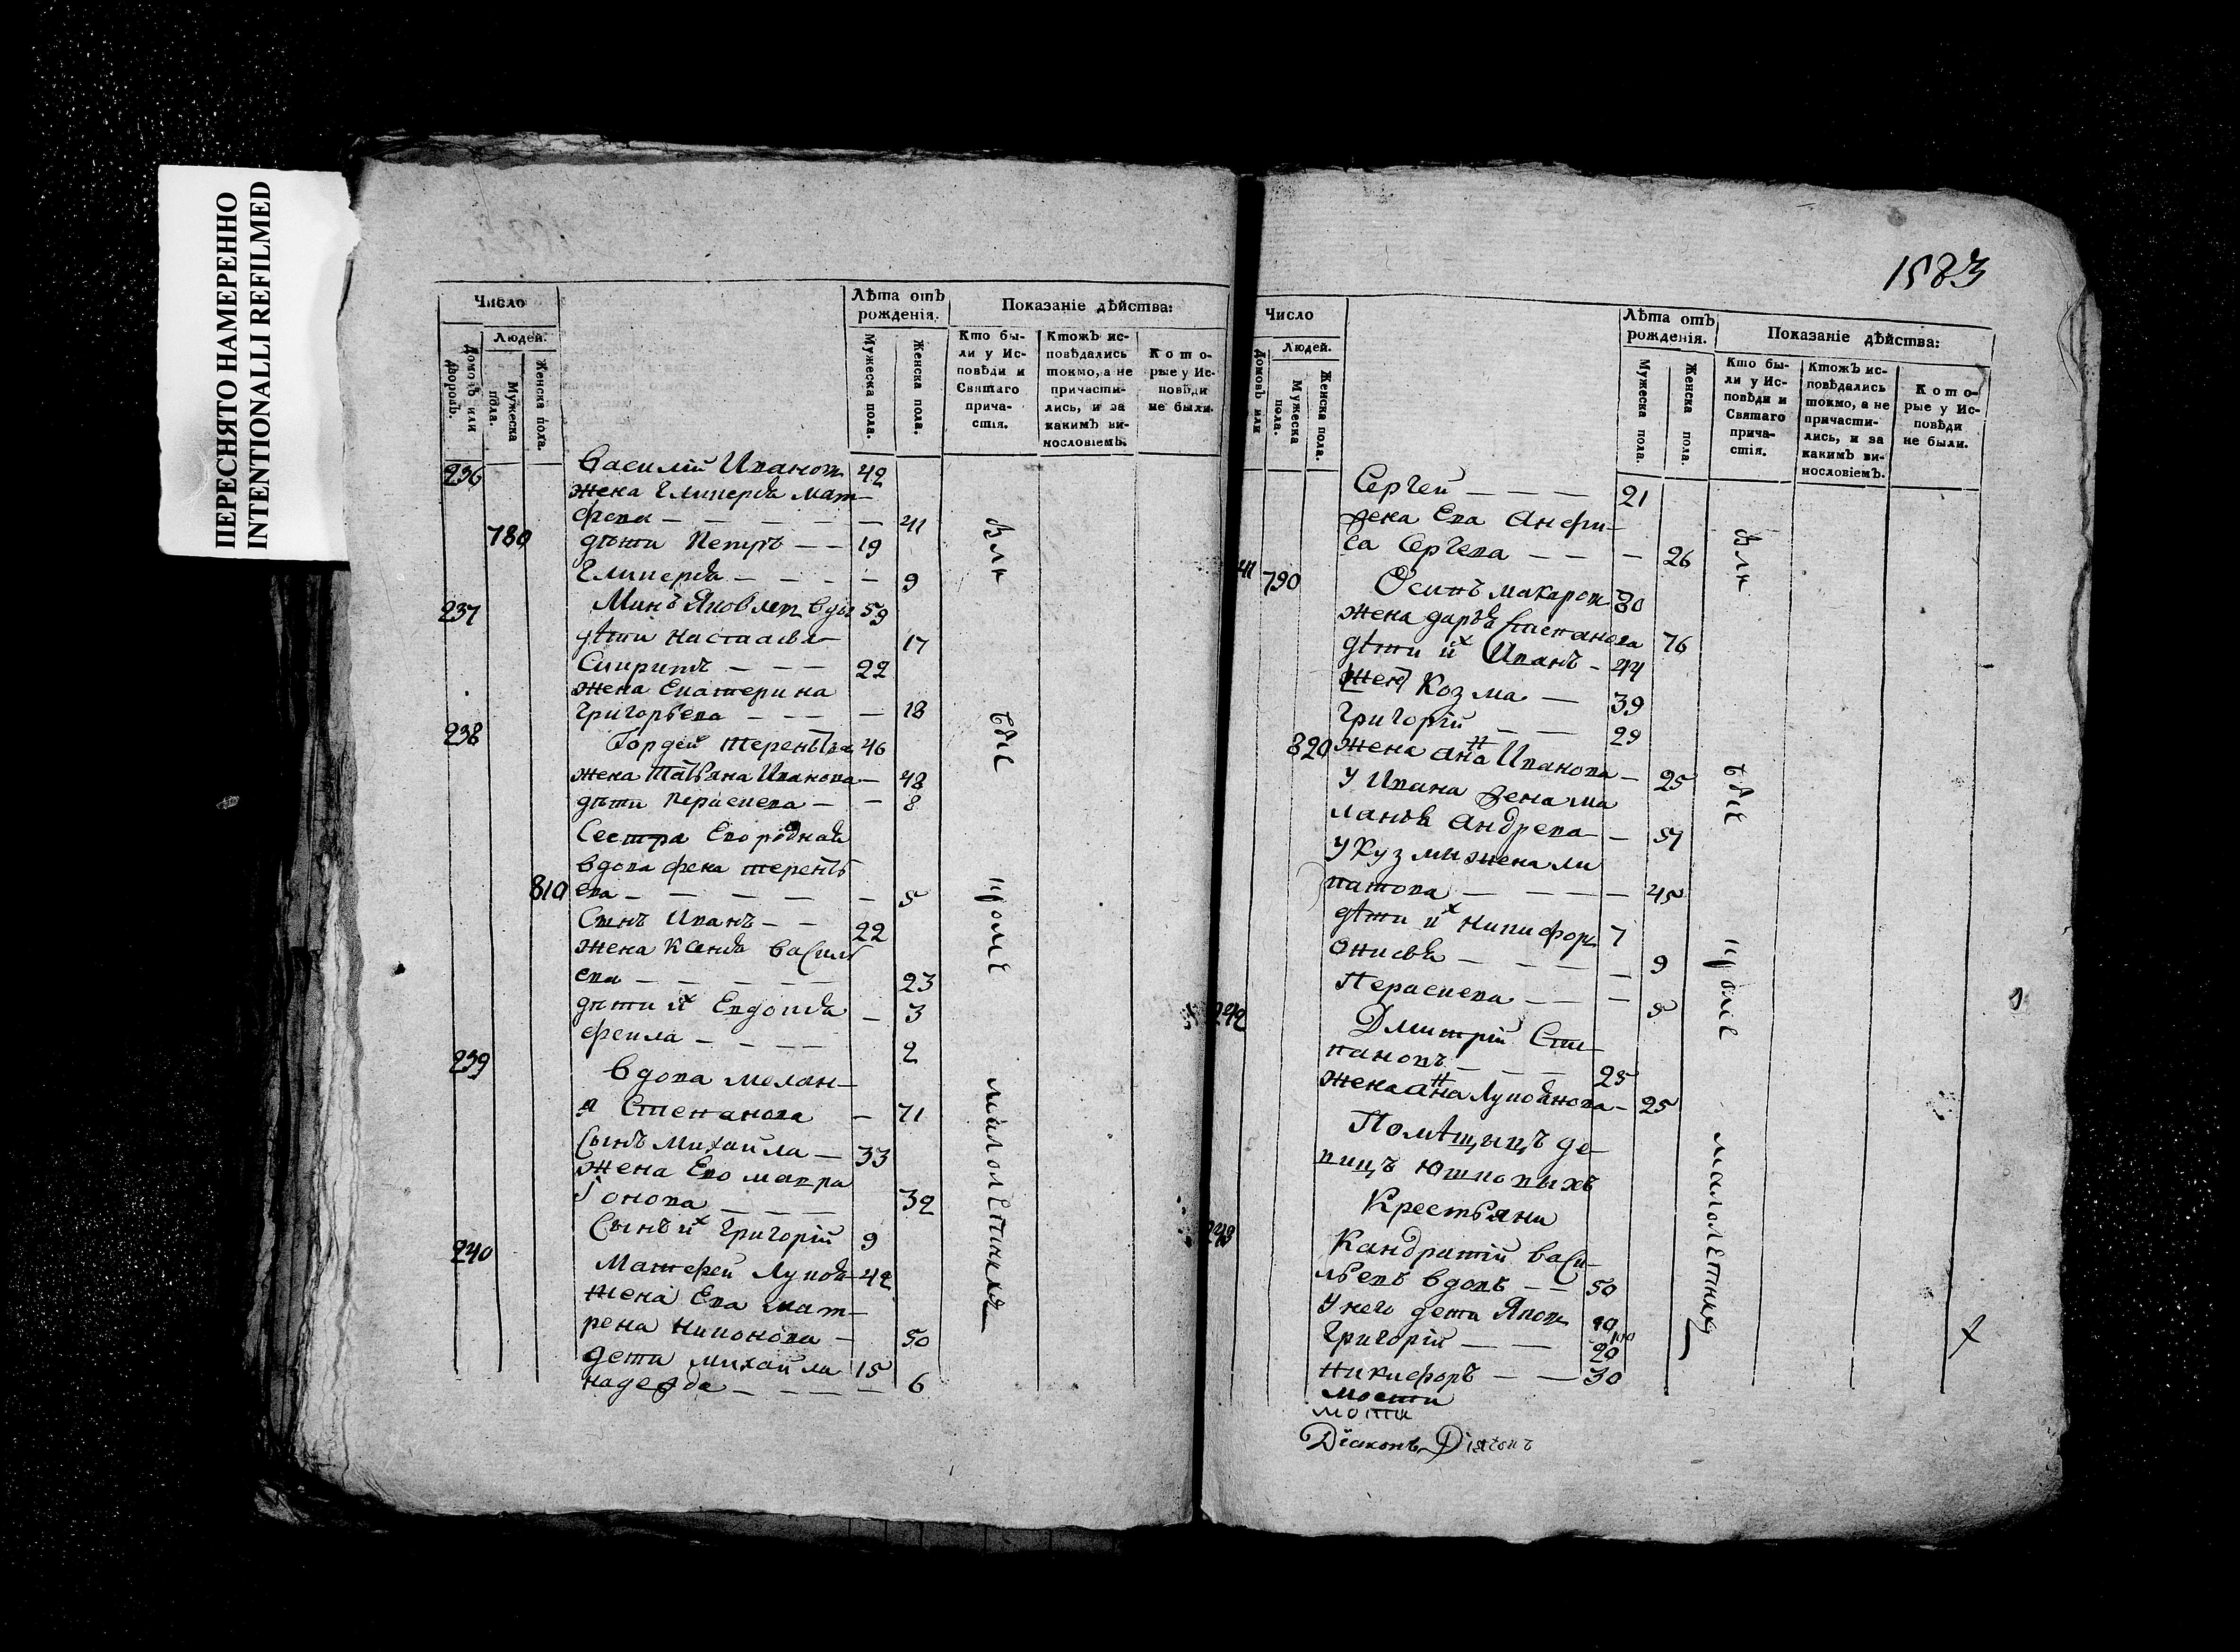 ПЕРЕСНЯТО НАМЕРЕННО
INTENTIONALLI REFILMED
Число
Людей.
Домовъ или дворовъ.
Мужеска пола.
Женска пола.
Лѣта отъ рожденія.
Мужеска пола.
Женска пола.
Показаніе дѣйства:
Кто были у Исповѣди и Святаго причастія.
Ктожъ исповѣдались токмо, а не причастились, и за какимъ винословіемъ.
Которые у Исповѣди не были.
236 Василій Ивановъ 42
жена Гликерія Мат-
фева — 41
780 дѣти Петръ — 19
Гликерія — 9
237 Минъ Яковлевъ вдов 59
дѣти Настасія 17
Спиритъ — 22
жена Екатерина
Григорьева — 18
238 Гордей Терентьев 46
жена Татьяна Иванова — 48
дѣти Парасцева — 8
Сестра Ево родная
вдова Фекла Терентъ
810 ева — 5
Сынъ Иванъ — 22
жена Ксенія Василь
ева — 23
дѣти их Евдокія — 3
Фекла — 2
239 вдова Мелан-
я Степанова — 71
Сынъ Михайла — 33
жена Ево Мавра
Іонова — 32
Сынъ их Григорій 9
240 Матфей Лукоя 42
жена Ева Мат-
рена Никонова — 50
дети Михайла 15
Надежда — 6
Были
всѣ
кромѣ
малолетных
1583
Число
Людей.
Домовъ или
Мужеска пола.
Женска пола.
Лѣта отъ рожденія.
Мужеска пола.
Женска пола.
Показаніе дѣйства:
Кто были у Исповѣди и Святаго причастія.
Ктожъ исповѣдались токмо, а не причастились, и за какимъ винословіемъ.
Которые у Исповѣди не были.
Сергей — 21
жена Ева Анфи-
са Сергева — 26
41 790 Осипъ Макаров 80
жена Дарья Степанова 76
дѣти их Иванъ — 44
Козма — 39
Григорій — 29
820 жена Анна Иванова — 25
У Ивана жена Ма
ланья Андрева — 51
У Кузмы жена Ли
патова — 45
дѣти их Никифоръ 7
Онисья — 9
Парасцева — 5
242 Дмитрій Сте-
пановъ — 25
жена Анна Лукоянова — 25
Помѣщицъ де-
вицъ Юшковыхъ
Крестьяни
243 Кандратій Васи-
льевъ вдовъ — 50
У него дети Яков
Григорій — 20
Никифоръ — 30
Діаконъ Діяконъ
Были
всѣ
кромѣ
малолетных